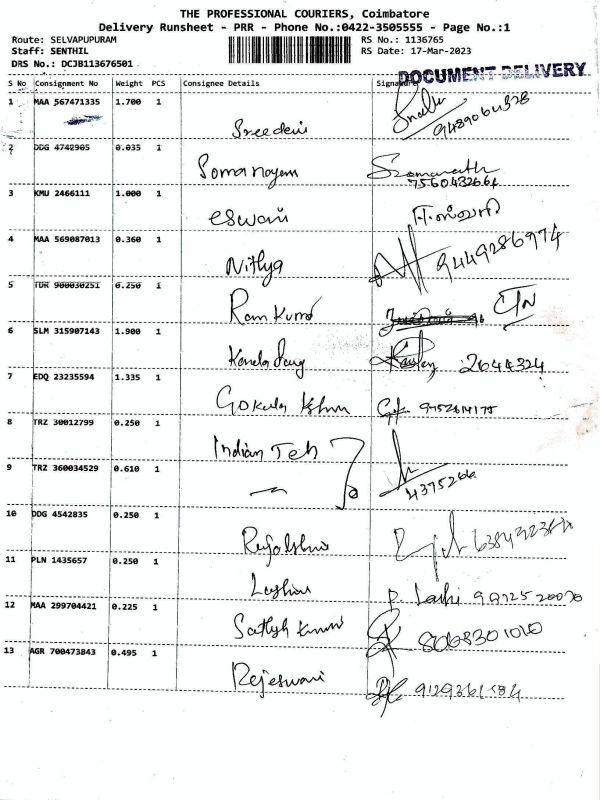 THE PROFESSIONAL COURIERS, Coimbatore
Delivery Runsheet - PRR - Phone No.:0422-3505555 - Page No.:1
Route: SELVAPUPURAM RS No.: 1136765
Staff: SENTHIL RS Date: 17-Mar-2023
DRS No.: DCJB113676501
DOCUMENT DELIVERY
S No Consignment No Weight PCS Consignee Details Signature
1 MAA 567471335 1.700 1
Sreedevi
2 DDG 4742905 0.035 1
3 KMU 2466111 1.000 1
eswari
4 MAA 569087013 0.360 1
Nithya 9449286974
5 TDR 900030251 0.250 1
Ram Kumar
6 SLM 315907143 1.900 1
2644324
7 EDQ 23235594 1.335 1
8 TRZ 30012799 0.250 1
Indian Teh
9 TRZ 360034529 0.610 1
4375266
10 DDG 4542835 0.250 1
11 PLN 1435657 0.250 1
12 MAA 299704421 0.225 1
8068301010
13 AGR 700473843 0.495 1
Rejeswari